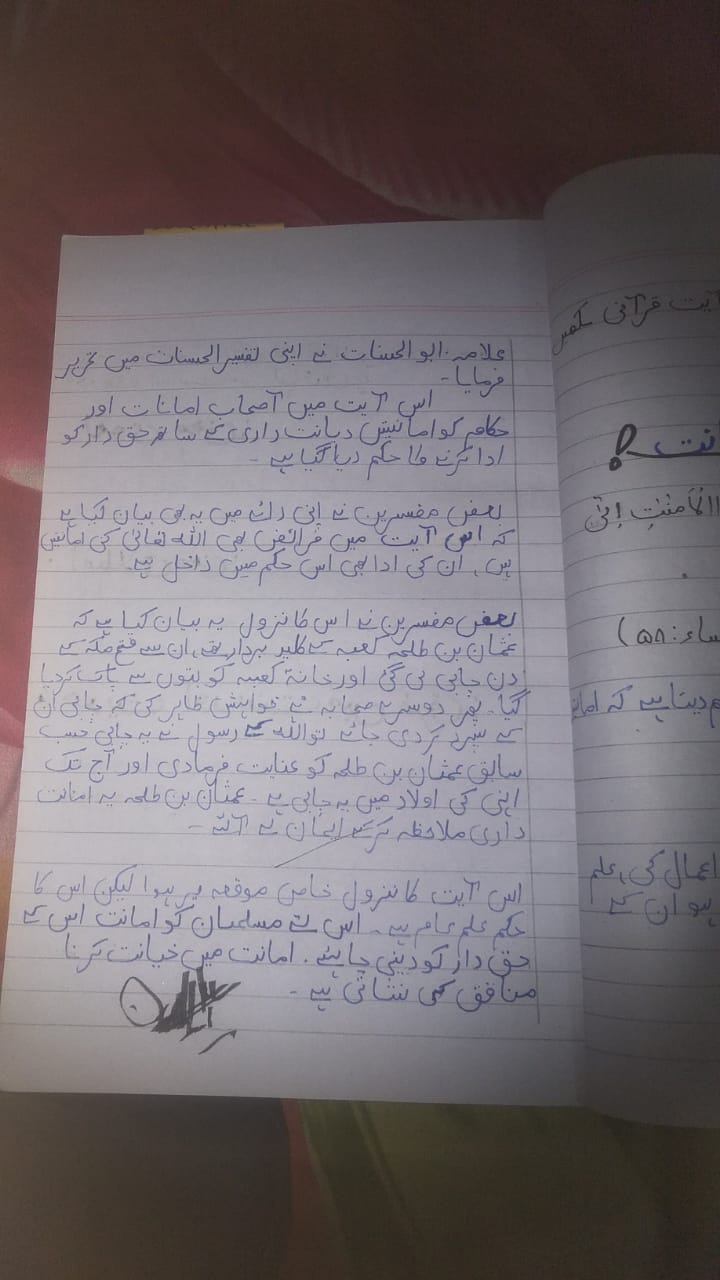 علامہ ابو الحسنات نے اپنی تفسیر الحسنات میں تحریر
فرمایا۔
اس آیت میں اصحاب امانات اور
حکام کو امانتیں دیانت داری کے ساتھ حق دار کو
ادا کرنے کا حکم دیا گیا ہے۔
بعض مفسرین نے اپنی رائے میں یہ بھی بیان کیا ہے
کہ اس آیت میں فرائض بھی اللہ تعالیٰ کی امانتیں
ہیں، ان کی ادا بھی اس حکم میں داخل ہے۔
بعض مفسرین نے اس کا نزول یہ بیان کیا ہے کہ
عثمان بن طلحہ کعبہ کے کلید بردار تھے، ان سے فتح مکہ کے
دن چابی لی گئی اور خانۂ کعبہ کو بتوں سے پاک کردیا
گیا۔ پھر دوسرے صحابہ نے خواہش ظاہر کی کہ چابی ان
کے سپرد کردی جائے تو اللہ کے رسول نے یہ چابی حسب
سابق عثمان بن طلحہ کو عنایت فرمادی اور آج تک
انہی کی اولاد میں یہ چابی ہے۔ عثمان بن طلحہ یہ امانت
داری ملاحظہ کرکے ایمان لے آئے۔
اس آیت کا نزول خاص موقعہ پر ہوا لیکن اس کا
حکم عام ہے۔ اس لئے مسلمان کو امانت اس کے
حق دار کو دینی چاہئے۔ امانت میں خیانت کرنا
منافق کی نشانی ہے۔
آیت قرآنی لکھیں
انت!
الأمنت إلى
ساء: ۵۸)
م دیتا ہے کہ امان
اعمال کی، علم
ہو ان کے